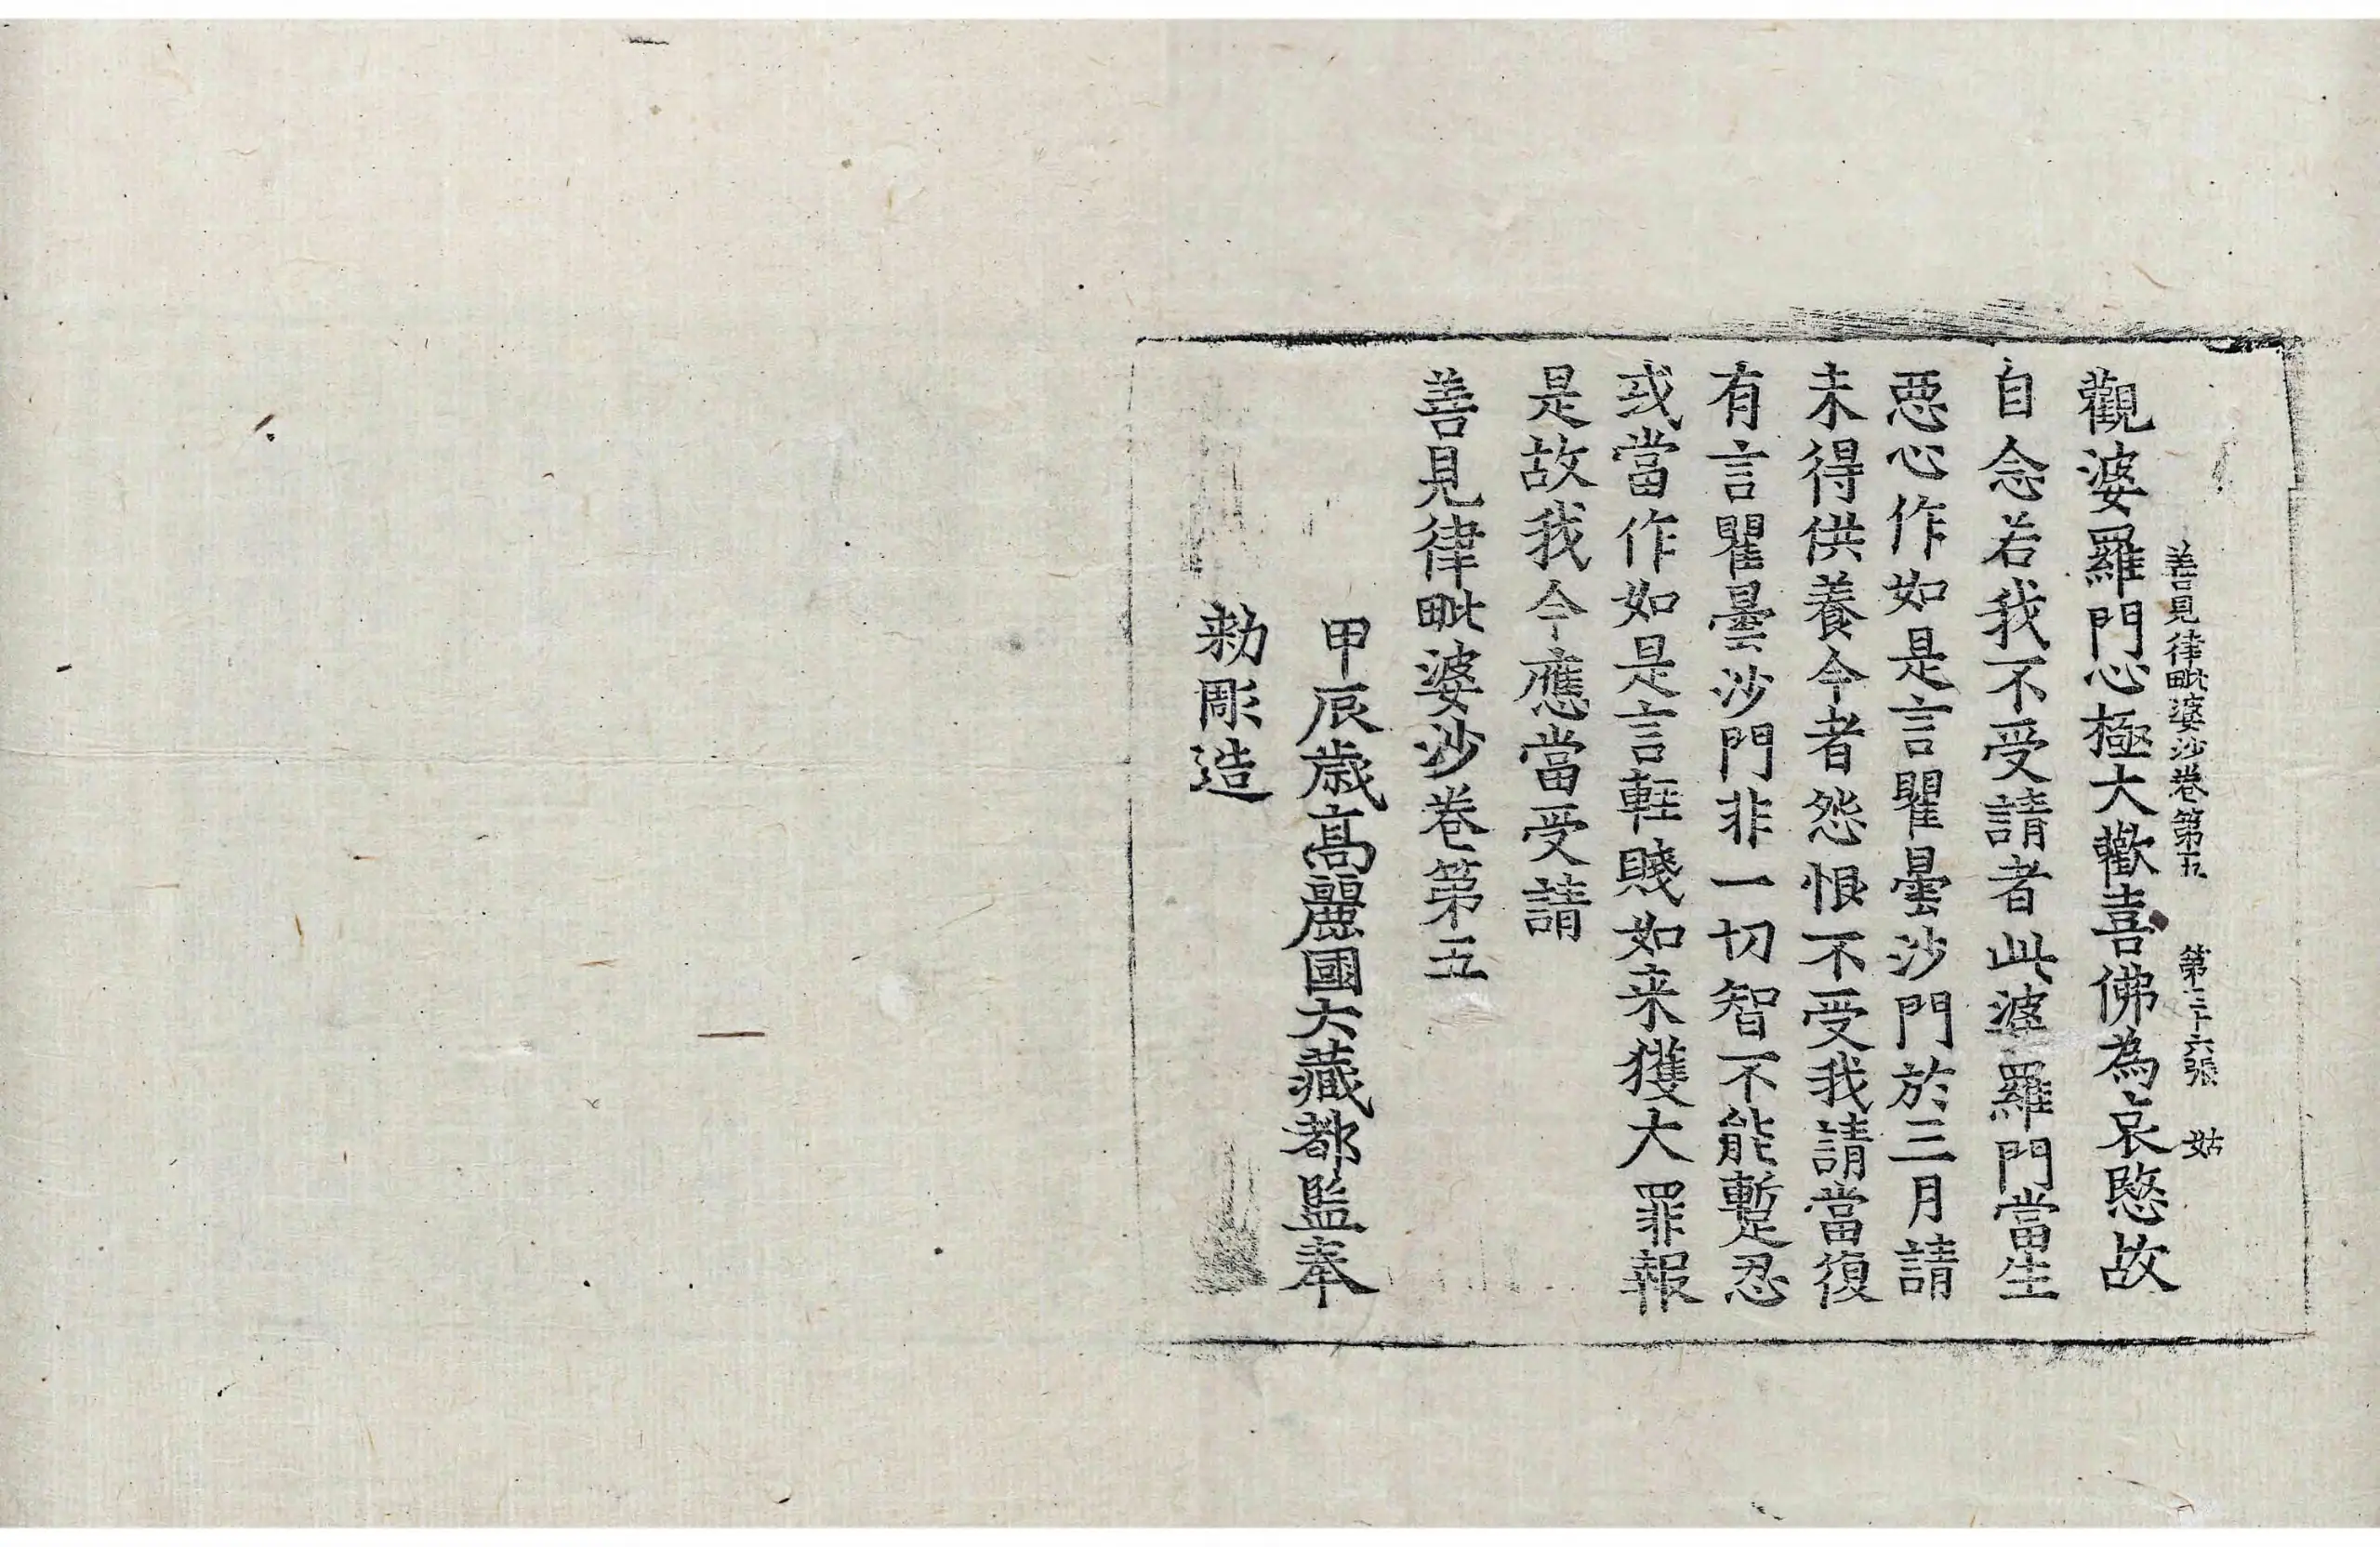 善見律毗婆沙卷第五 第二十六張 姑
觀婆羅門心極大歡喜佛為哀愍故
自念若我不受請者此婆羅門當生
惡心作如是言瞿曇沙門於三月請
未得供養今者怨恨不受我請當復
有言瞿曇沙門非一切智不能蹔忍
或當作如是言輕賤如来獲大罪報
是故我今應當受請
善見律毗婆沙卷第五
甲辰歲高麗國大藏都監奉
勑彫造